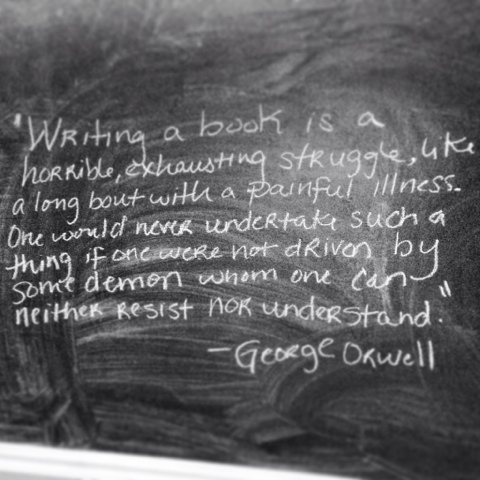 "Writing a book is a
horrible, exhausting struggle, like
a long bout with a painful illness.
One would never undertake such a
thing if one were not driven by
some demon whom one can
neither resist nor understand."
—George Orwell